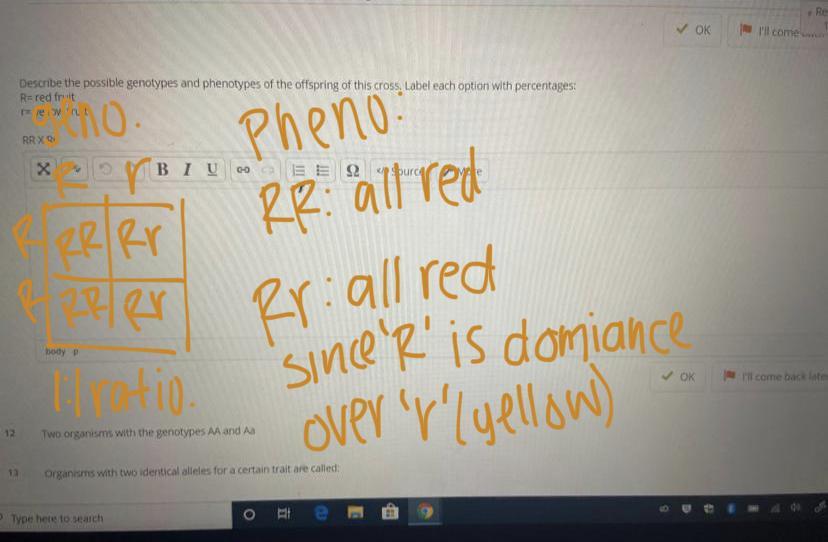 Re
OK
I'll come
Describe the possible genotypes and phenotypes of the offspring of this cross. Label each option with percentages:
R= red fruit
geno.
Pheno:
RR X
B I U Ω Source
R r
RR: all red
R RR Rr
R RR Rr
Rr: all red
since 'R' is domiance
over 'r' (yellow)
body p
1:1 ratio.
OK
I'll come back late
12 Two organisms with the genotypes AA and Aa
13 Organisms with two identical alleles for a certain trait are called:
Type here to search